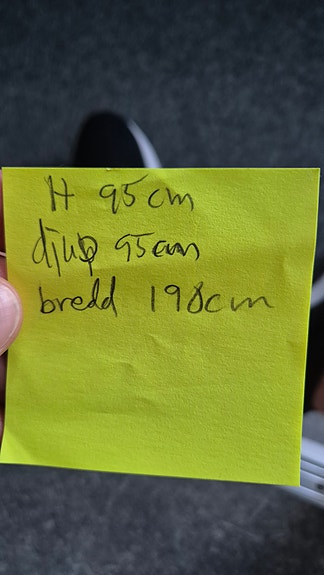 H 95cm
djup 95cm
bredd 198cm